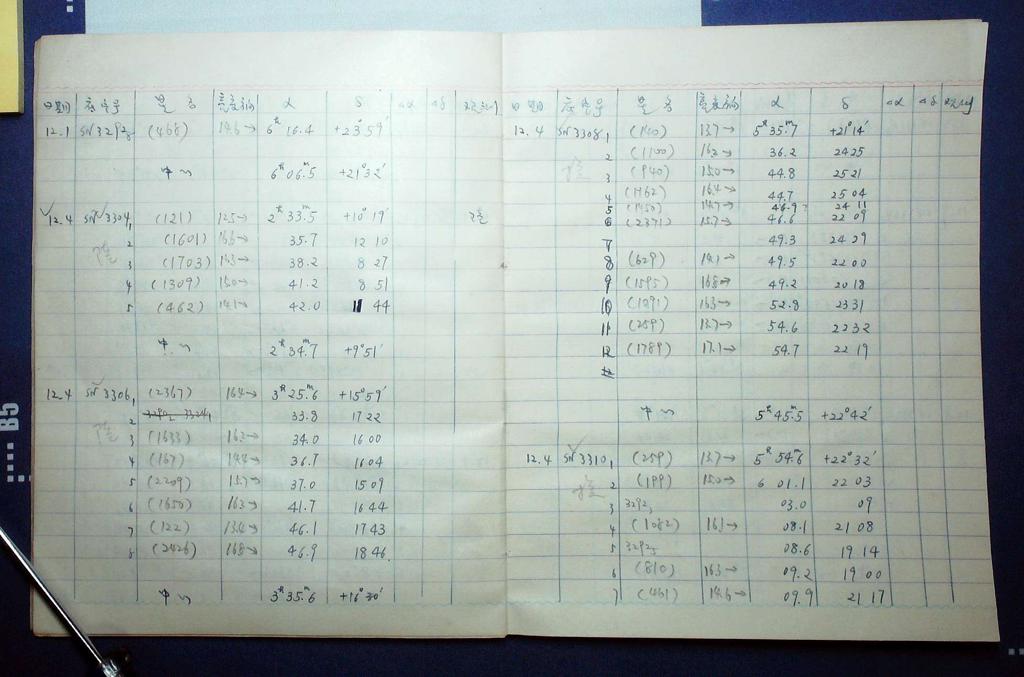 日期 底片号 星名 亮度 α δ Δα Δδ
12.1 SN3292₈ (468) 14.6→ 6ʰ16.4ᵐ +23°59′
中心 6ʰ06.5ᵐ +21°32′
12.4 SN3304₁ (121) 12.5→ 2ʰ33.5ᵐ +10°19′
2 (1601) 16.6→ 35.7 12 10
3 (1703) 35.7→ 38.2 8 27
4 (1309) 15.0→ 41.2 8 51
5 (462) 14.1→ 42.0 11 44
中心 2ʰ34.7ᵐ +9°51′
12.4 SN3306₁ (2367) 16.4→ 3ʰ25.6ᵐ +15°59′
2 33.8 17 22
3 (1633) 16.2→ 34.0 16 00
4 (167) 14.4→ 36.7 16 04
5 (2209) 15.7→ 37.0 15 09
6 (1650) 16.3→ 41.7 16 44
7 (122) 13.4→ 46.1 17 43
8 (2426) 16.8→ 46.9 18 46
中心 3ʰ35.6ᵐ +16°30′
日期 底片号 星名 亮度 α δ Δα Δδ
12.4 SN3308₁ (140) 13.7→ 5ʰ35.7ᵐ +21°14′
2 (1100) 16.2→ 36.2 24 25
3 (940) 15.0→ 44.8 25 21
4 (1162) 16.4→ 44.7 25 04
5 (1450) 14.7→ 46.9? 24 11
6 (2371) 15.7→ 46.6 22 09
7 49.3 24 29
8 (629) 14.1→ 49.5 22 00
9 (1595) 16.8→ 49.2 20 18
10 (1291) 16.3→ 52.8 23 31
11 (259) 13.7→ 54.6 22 32
12 (1789) 17.1→ 54.7 22 19
中心 5ʰ45.5ᵐ +22°42′
12.4 SN3310₁ (259) 13.7→ 5ʰ54.6ᵐ +22°32′
2 (199) 15.0→ 6 01.1 22 03
3 3292₃ 03.0 09
4 (1082) 16.1→ 08.1 21 08
5 3292₅ 08.6 19 14
6 (810) 16.3→ 09.2 19 00
7 (461) 14.6→ 09.9 21 17
B5